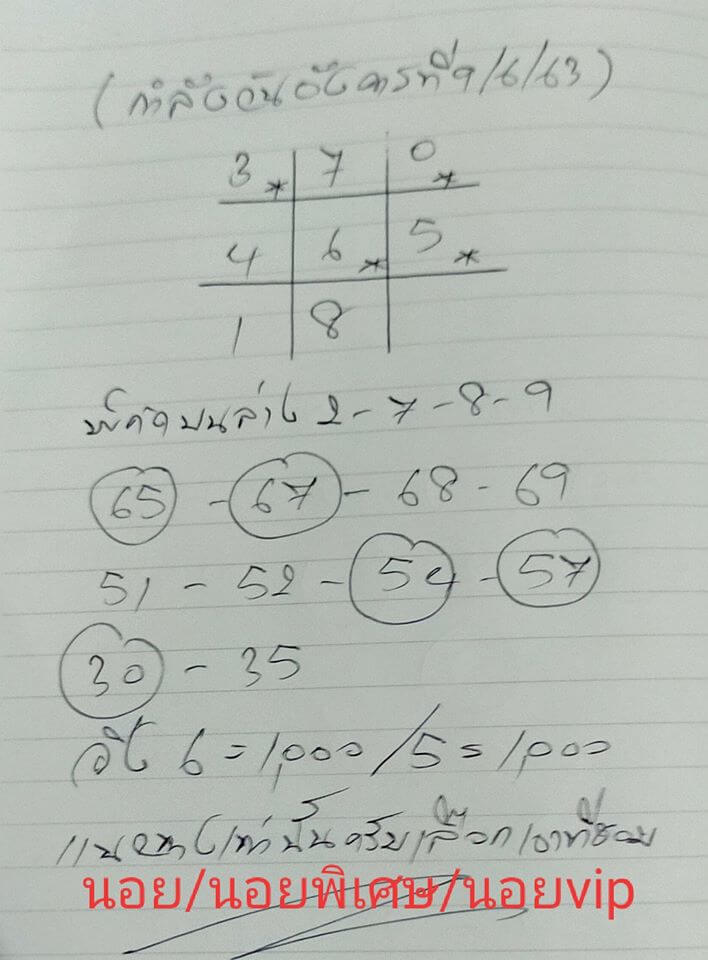 (กำลังวันอังคารที่9/6/63)
3* 7 0*
4 6* 5*
1 8
พิกัดบนล่าง 2-7-8-9
65 - 67 - 68 - 69
51 - 52 - 54 - 57
30 - 35
วิ่ง 6=1,000/5=1,000
แนวทางเท่านั้นครับเลือกเอาที่ชอบ
นอย/นอยพิเศษ/นอยvip